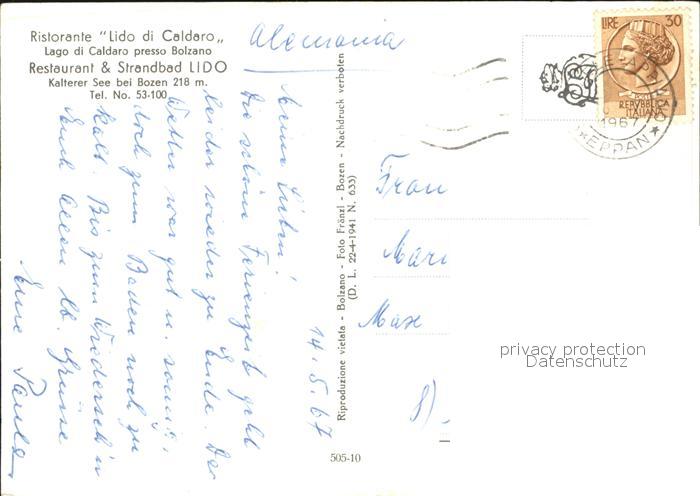 Ristorante "Lido di Caldaro„
Lago di Caldaro presso Bolzano
Restaurant & Strandbad LIDO
Kalterer See bei Bozen 218 m.
Tel. No. 53-100
Alemania
14.5.67
Meine Lieben!
Die schöne Ferienzeit geht
leider wieder zu Ende. Das
Wetter war gut u. sonnig,
doch zum Baden noch zu
kalt. Bis zum Wiederseh'n
Euch Allen lb. Grüsse
Eure Paula
Riproduzione vietata - Bolzano - Foto Fränzl - Bozen - Nachdruck verboten
(D. L. 22-4-1941 N. 633)
505-10
LIRE 30
REPVBBLICA
ITALIANA
1967
*EPPAN*
Frau
Mari
Max
8)
privacy protection
Datenschutz